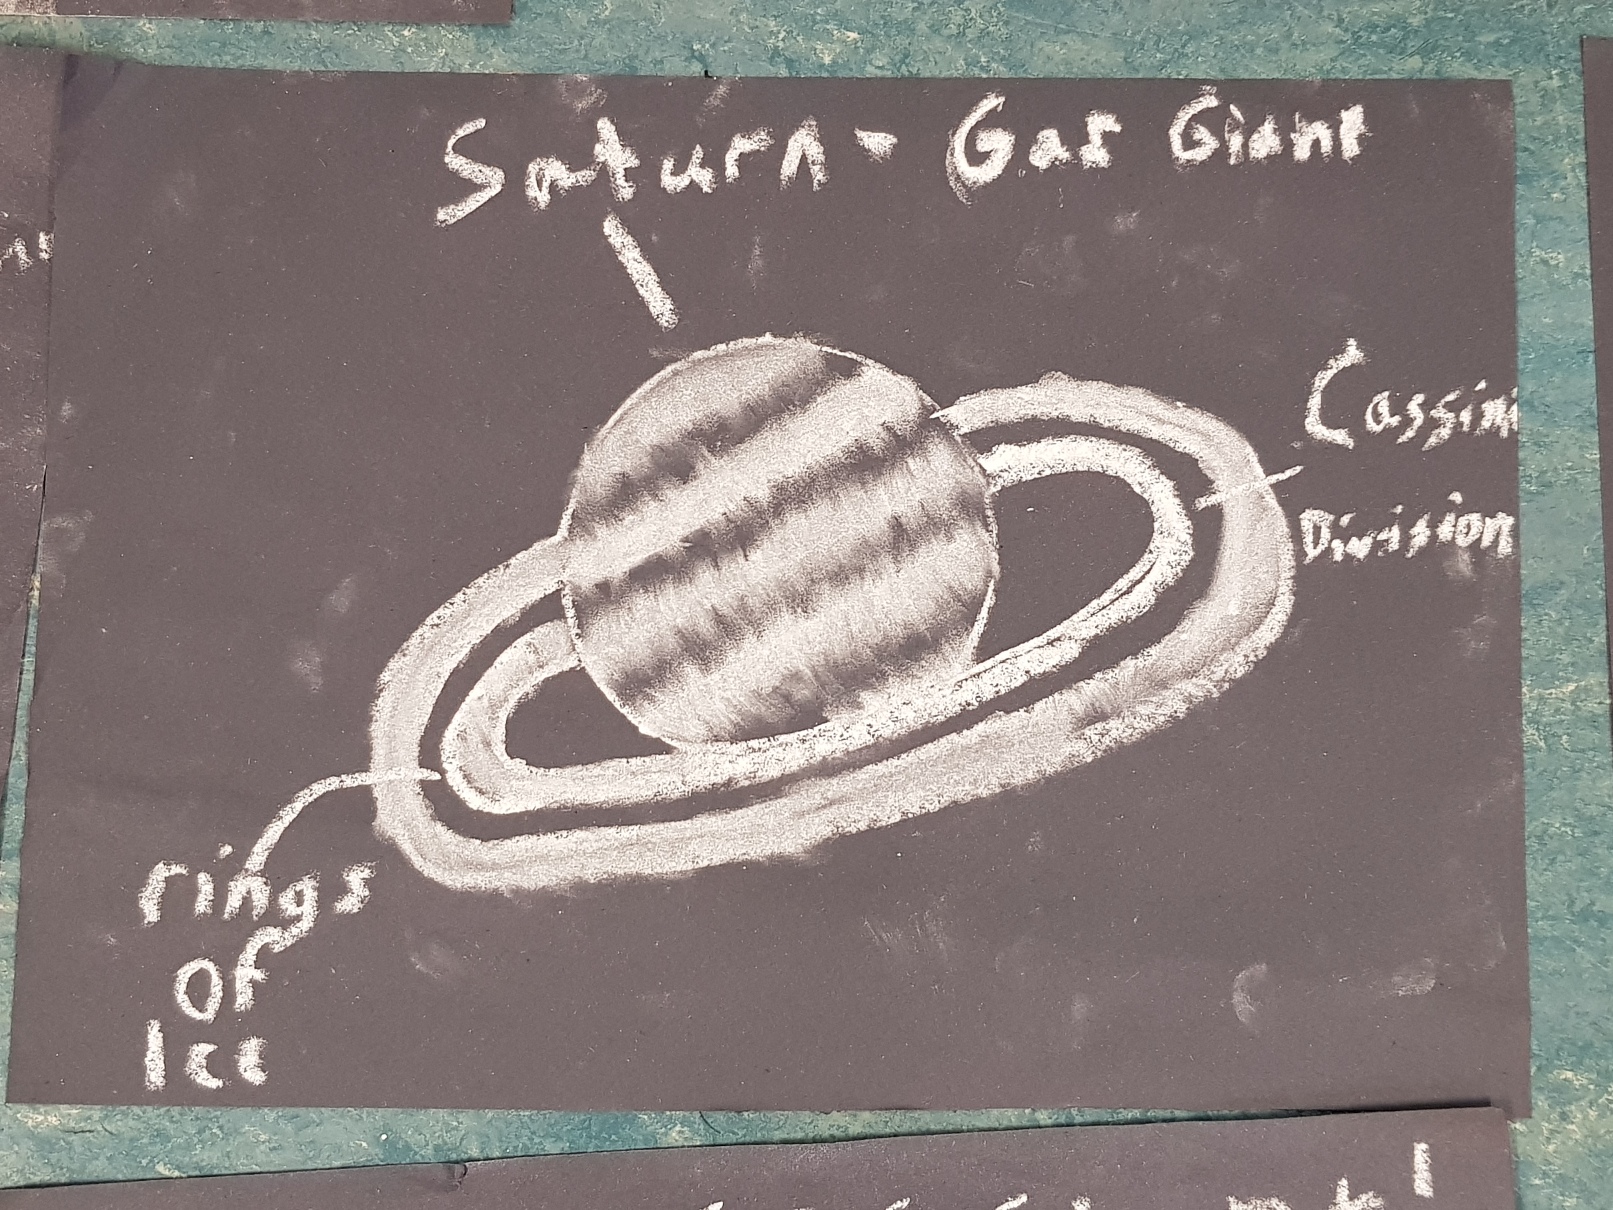 Saturn - Gas Giant
Cassini
Division
rings
Of
Ice